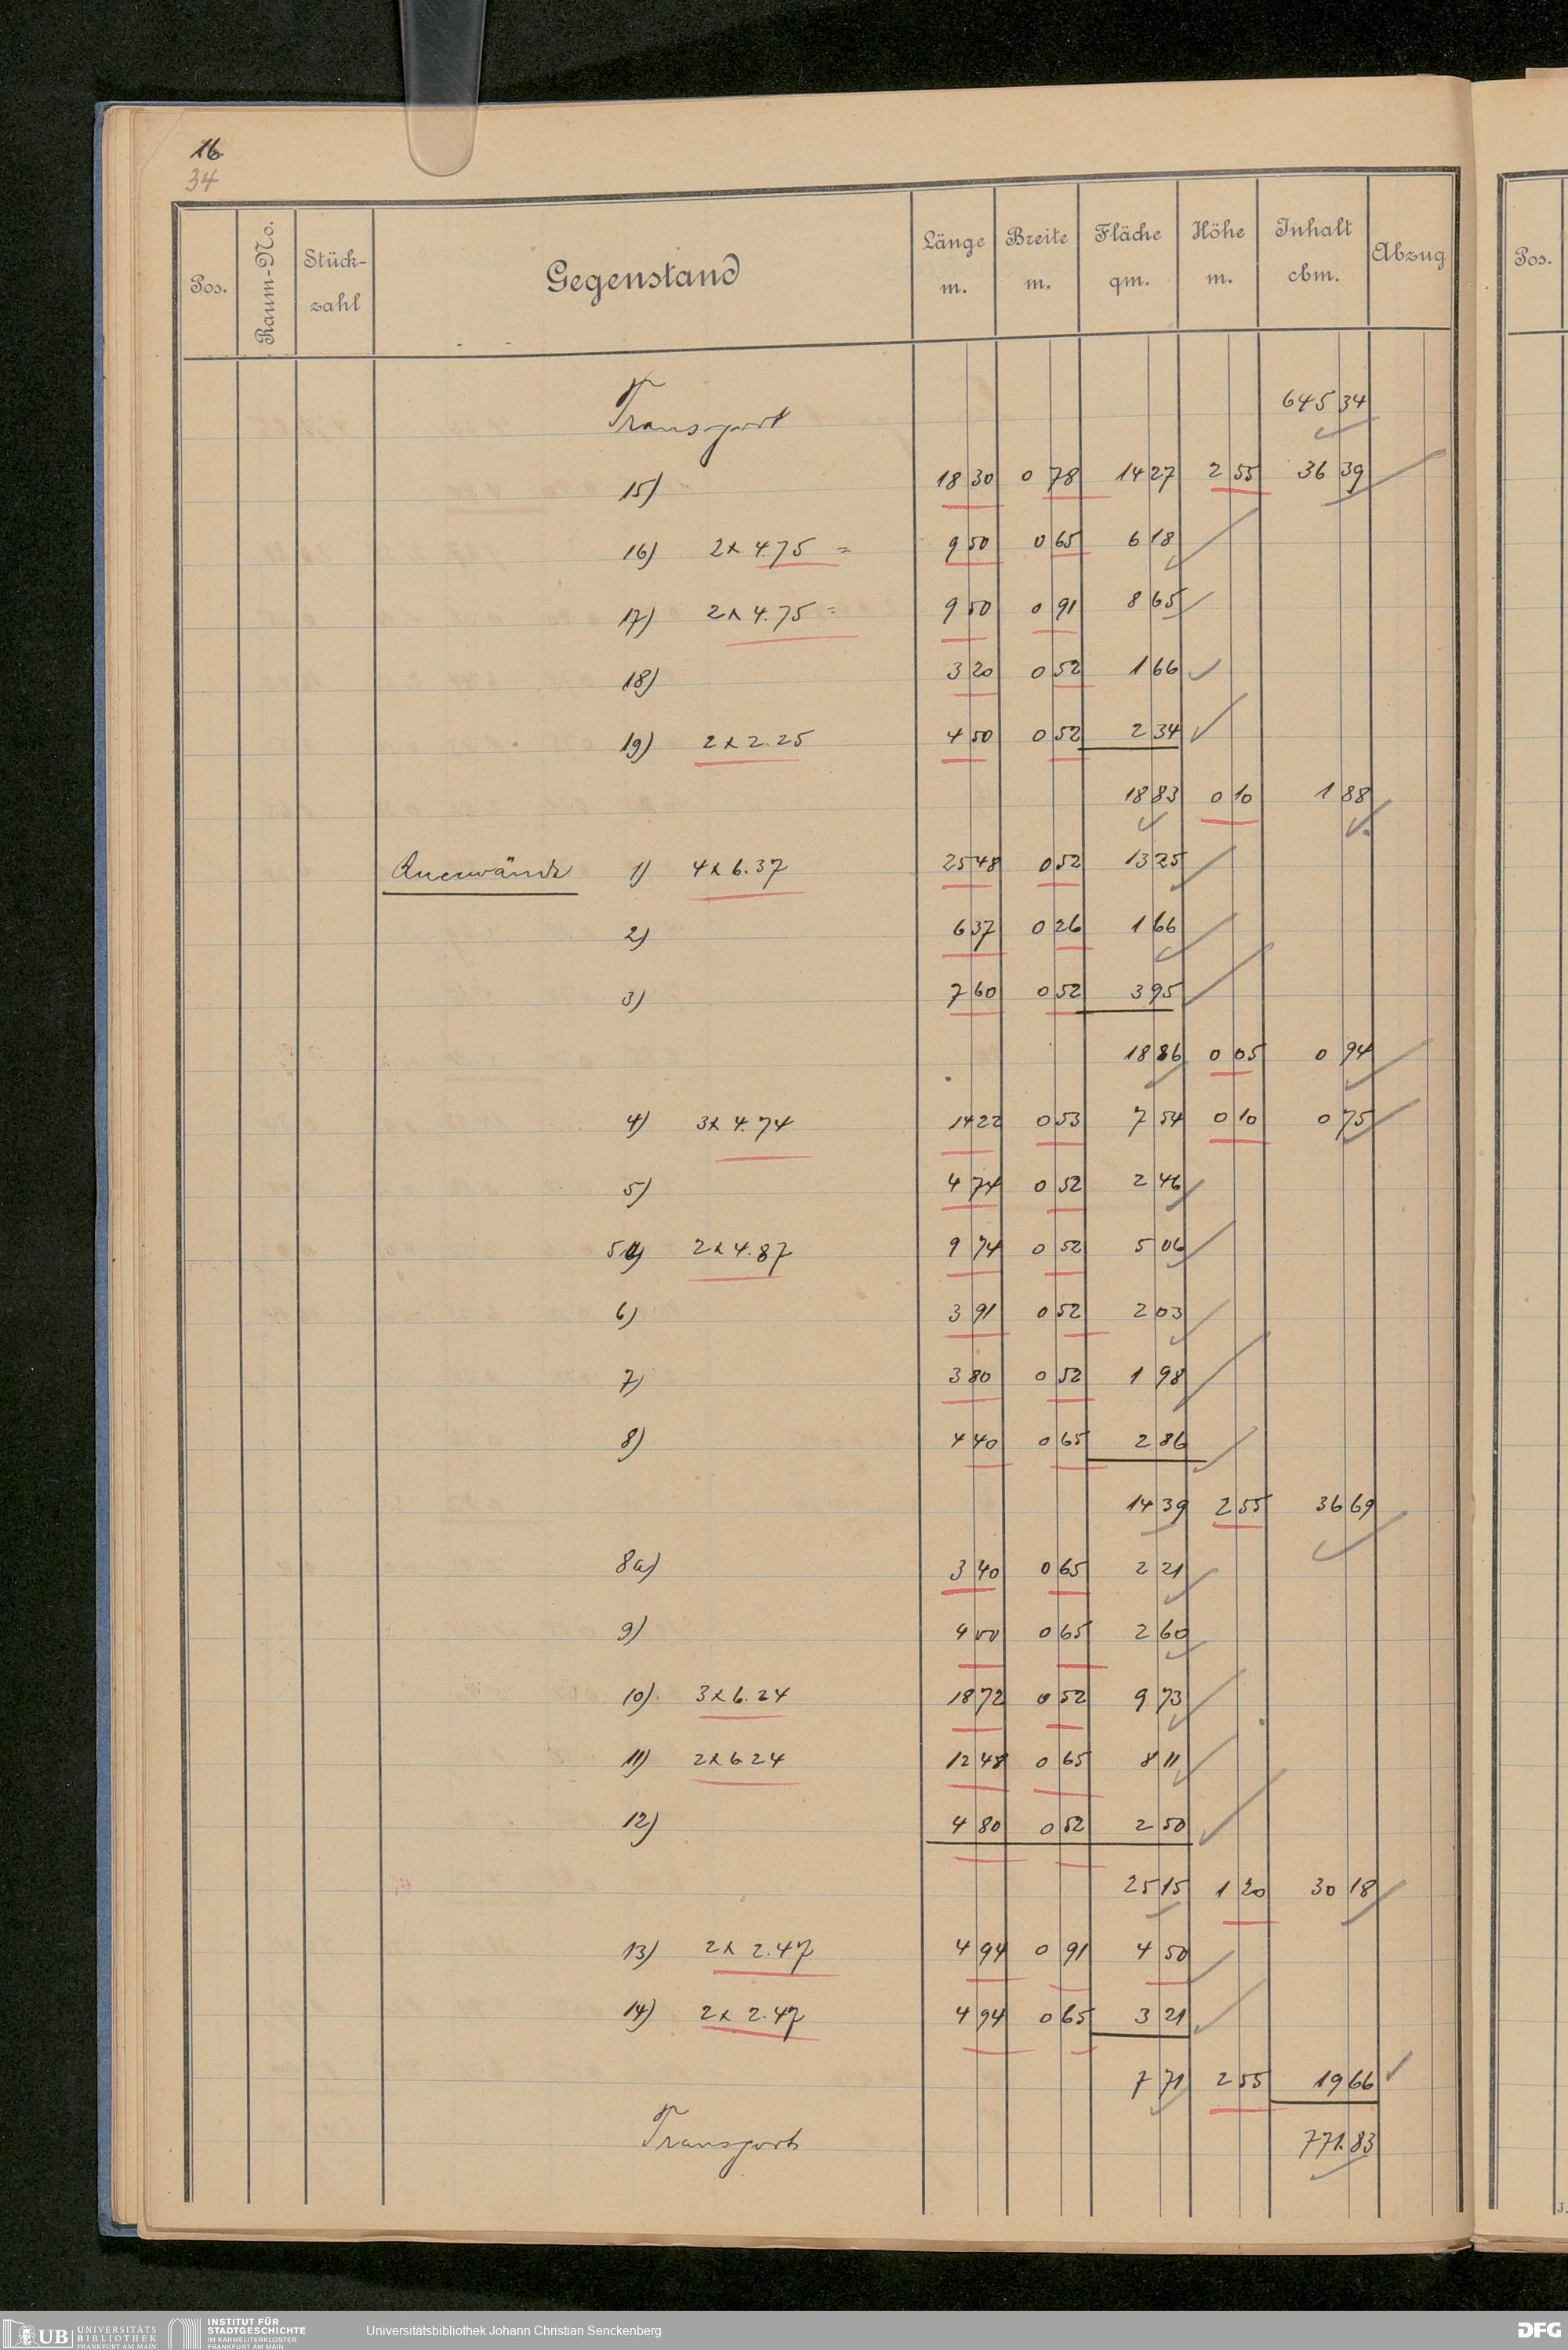 16.
34
Pos. Raum-No. Stück-zahl Gegenstand Länge m. Breite m. Fläche qm. Höhe m. Inhalt cbm. Abzug Pos.
Transport 645 34
15) 18 30 0 78 14 27 2 55 36 39
16) 2 x 4.75 = 9 50 0 65 6 18
17) 2 x 4.75 = 9 50 0 91 8 65
18) 3 20 0 52 1 66
19) 2 x 2.25 4 50 0 52 2 34
18 83 0 10 1 88
Querwände 1) 4 x 6.37 25 48 0 52 13 25
2) 6 37 0 26 1 66
3) 7 60 0 52 3 95
18 86 0 05 0 94
4) 3 x 4.74 14 22 0 53 7 54 0 10 0 75
5) 4 74 0 52 2 46
5a) 2 x 4.87 9 74 0 52 5 06
6) 3 91 0 52 2 03
7) 3 80 0 52 1 98
8) 4 40 0 65 2 86
14 39 2 55 36 69
8a) 3 40 0 65 2 21
9) 4 00 0 65 2 60
10) 3 x 6.24 18 72 0 52 9 73
11) 2 x 6 24 12 48 0 65 8 11
12) 4 80 0 52 2 50
25 15 1 20 30 18
13) 2 x 2.47 4 94 0 91 4 50
14) 2 x 2.47 4 94 0 65 3 21
7 71 2 55 19 66
Transport 771.83
J.
UB UNIVERSITÄTS BIBLIOTHEK FRANKFURT AM MAIN
INSTITUT FÜR STADTGESCHICHTE IM KARMELITERKLOSTER FRANKFURT AM MAIN
Universitätsbibliothek Johann Christian Senckenberg
DFG